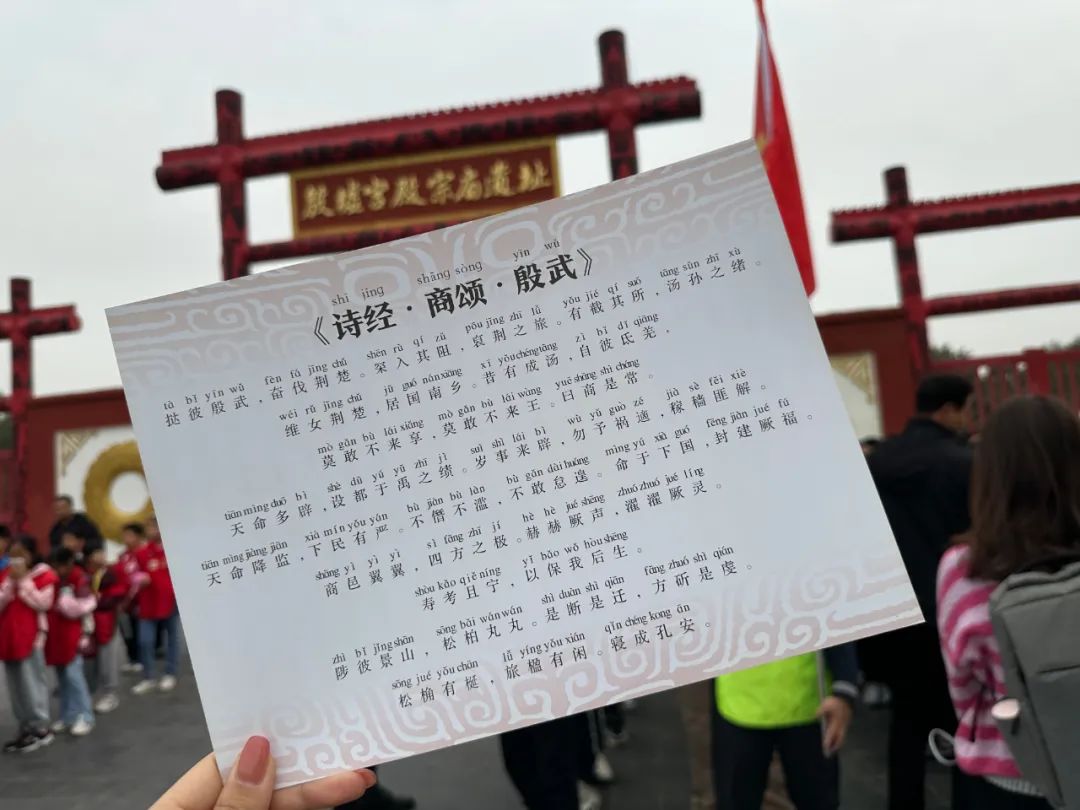 殷墟宫殿宗庙遗址
shī jīng shāng sòng yīn wǔ
《诗经·商颂·殷武》
tà bǐ yīn wǔ fèn fá jīng chǔ shēn rù qí zǔ póu jīng zhī lǚ yǒu jié qí suǒ tāng sūn zhī xù
挞彼殷武,奋伐荆楚。罙入其阻,裒荆之旅。有截其所,汤孙之绪。
wéi rǔ jīng chǔ jū guó nán xiāng xī yǒu chéng tāng zì bǐ dī qiāng
维女荆楚,居国南乡。昔有成汤,自彼氐羌,
mò gǎn bù lái xiǎng mò gǎn bù lái wáng yuē shāng shì cháng
莫敢不来享,莫敢不来王。曰商是常。
tiān mìng duō bì shè dū yú yǔ zhī jì suì shì lái bì wù yú guo zé jià sè fěi xiè
天命多辟,设都于禹之绩。岁事来辟,勿予祸適,稼穑匪解。
tiān mìng jiàng jiān xià mín yǒu yán bù jiàn bù làn bù gǎn dài huáng mìng yú xià guó fēng jiàn jué fú
天命降监,下民有严。不僭不滥,不敢怠遑。命于下国,封建厥福。
shāng yì yì yì sì fāng zhī jí hè hè jué shēng zhuó zhuó jué líng
商邑翼翼,四方之极。赫赫厥声,濯濯厥灵。
shòu kǎo qiě níng yǐ bǎo wǒ hòu shēng
寿考且宁,以保我后生。
zhì bǐ jǐng shān sōng bǎi wán wán shì duàn shì qiān fāng zhuó shì qián
陟彼景山,松柏丸丸。是断是迁,方斫是虔。
sōng jué yǒu chān lǚ yíng yǒu xián qǐn chéng kong ān
松桷有梴,旅楹有闲。寝成孔安。